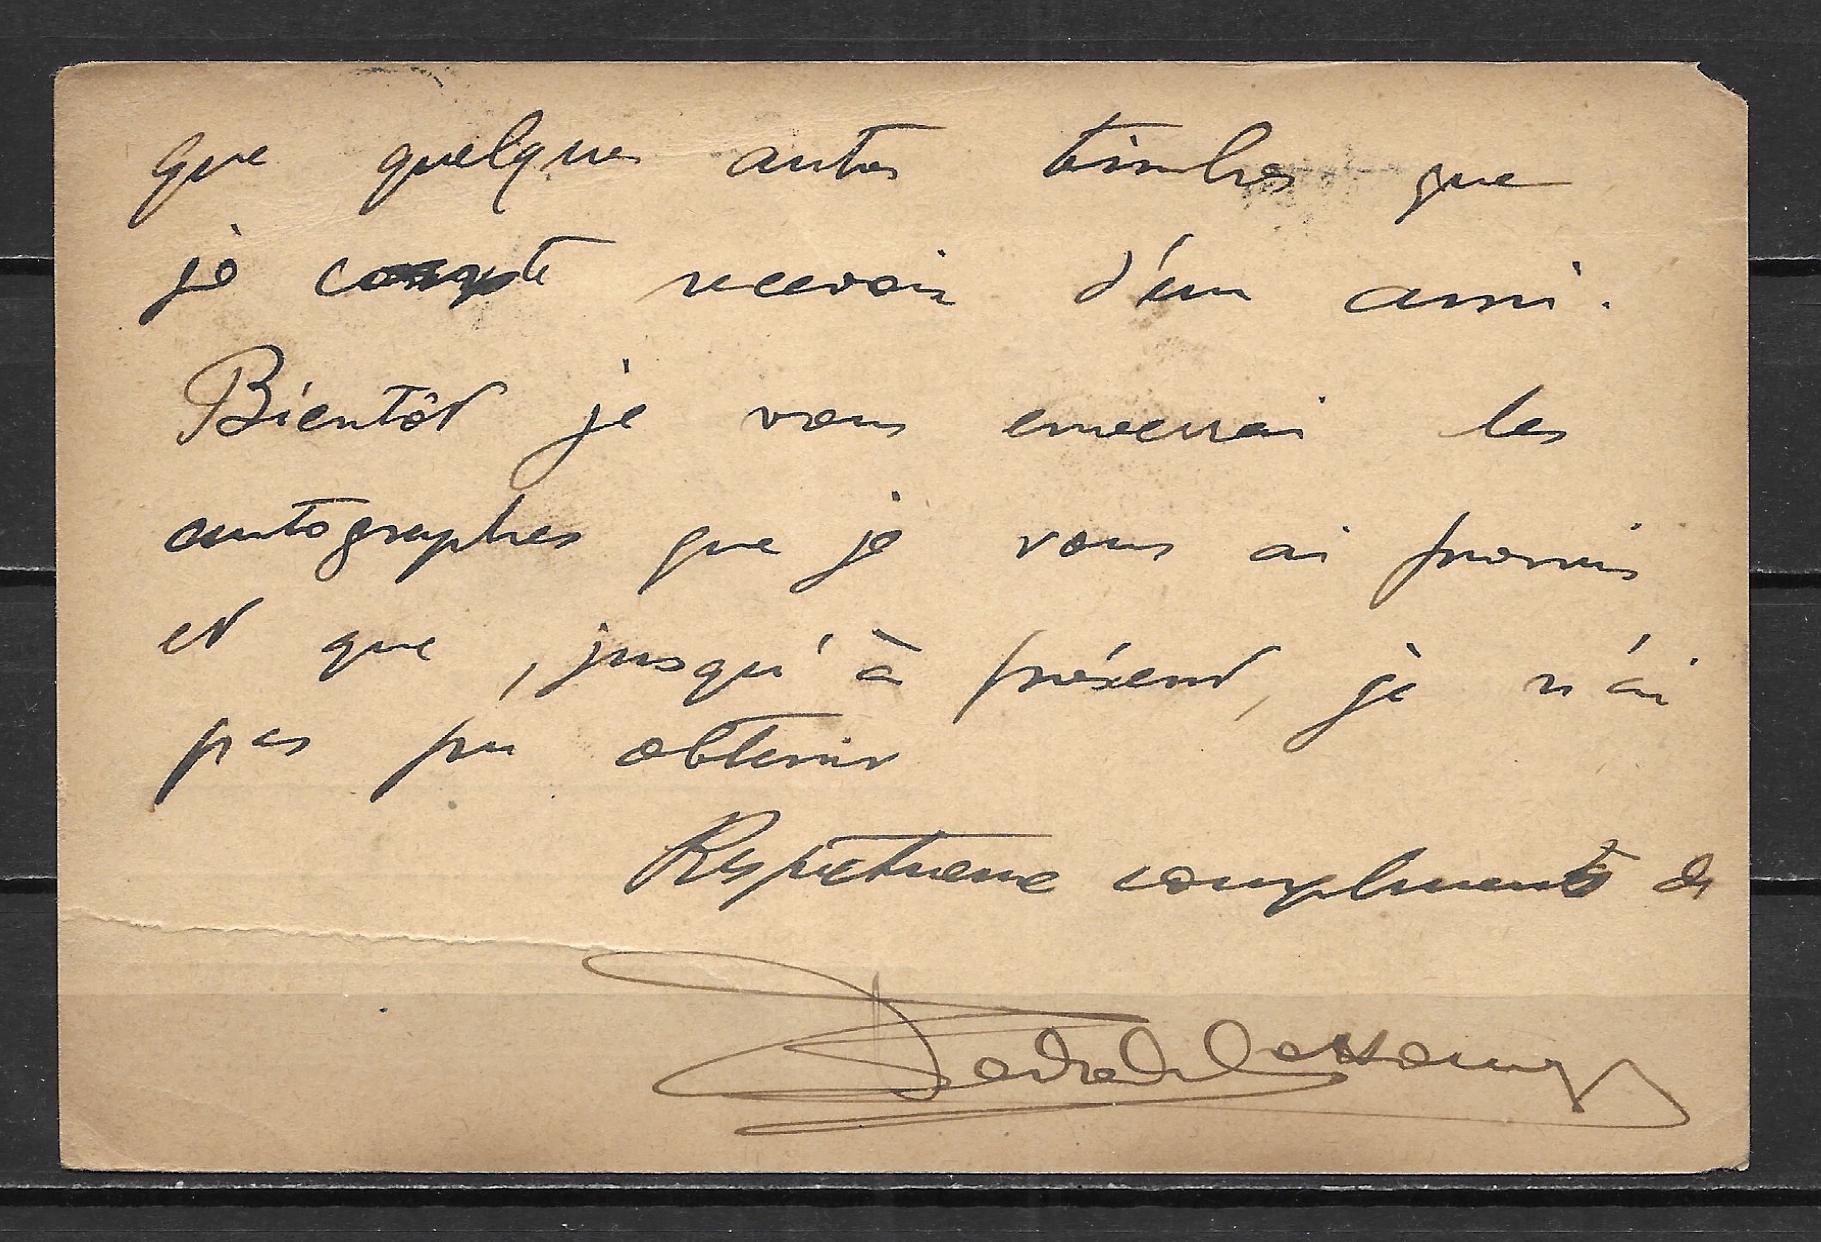 que quelques autres timbres que
je compte recevoir d'un ami.
Bientôt je vous enverrai les
autographes que je vous ai promis
et que, jusqu'à présent, je n'ai
pas pu obtenir
Respectueux compliments de